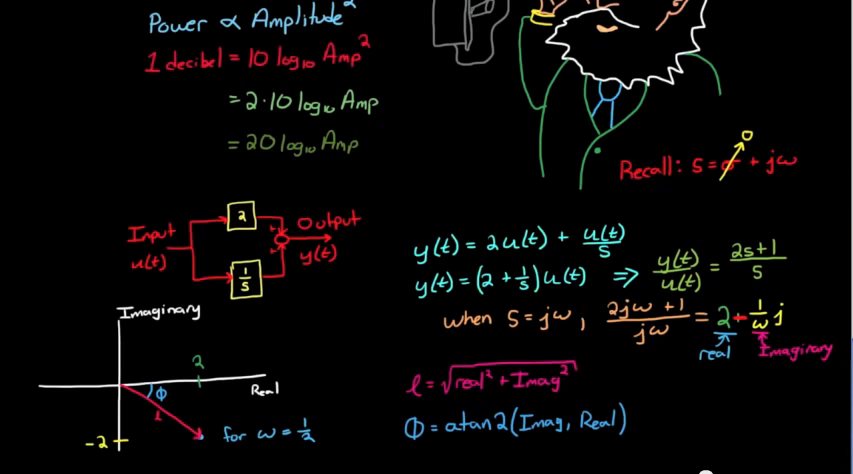 Power ∝ Amplitude²
1 decibel = 10 log₁₀ Amp²
= 2·10 log₁₀ Amp
= 20 log₁₀ Amp
Recall: S = σ + jω
0
Input
u(t)
2
1/S
+
+
Output
y(t)
y(t) = 2u(t) + u(t)/S
y(t) = (2 + 1/S) u(t) ⇒ y(t)/u(t) = 2s+1/S
when S = jω, 2jω+1/jω = 2 - 1/ω j
real
Imaginary
Imaginary
2
Real
ϕ
l
-2
for ω = 1/2
l = √real² + Imag²
ϕ = atan2(Imag, Real)